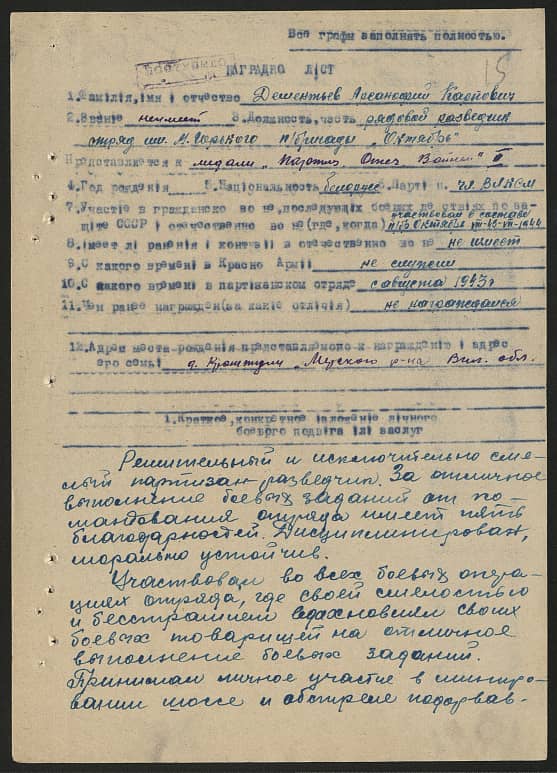 Все графы заполнять полностью.
НАГРАДНО ЛІСТ
15
1.Фамілія,імя і отчество Дементьев Архангий Карпович
2.Звание не имеет 3.Должность,часть рядовой разведчик
отряд им. М. Горького п/бригады "Октябрь"
Представляется к медали "Партиз Отеч Войны" II
4.Год рождения 5.Национальность белорус 6.Парті н. чл. ВЛКСМ
7.Участіе в гражданско во не,последующіх боевых де ствіях по за-
щіте СССР і отечественно во не(где,когда) участвовал в составе
п/б Октябрь VIII-43-VII-1944
8.Імеет лі раненія і контузіі в отечественно во не не имеет
9.С какого временi в Красно Арміі не служил
10.С какого временi в партізанском отряде с августа 1943г
11.Чем ранее награжден(за какіе отлічія) не награждался
12.Адрес места рожденія представляемого к награжденію і адрес
его семьі д. Кроштули Мерского р-на Вил. обл.
1.Краткое,конкретное ізложеніе лічного
боевого подвіга ілі заслуг
Решительный и исключительно сме-
лый партизан разведчик. За отличное
выполнение боевых заданий от ко-
мандования отряда имеет пять
благодарностей. Дисциплинирован,
морально устойчив.
Участвовал во всех боевых опера-
циях отряда, где своей смелостью
и бесстрашием вдохновлял своих
боевых товарищей на отличное
выполнение боевых заданий.
Принимал личное участие в миниро-
вании шоссе и обстреле подорвав-